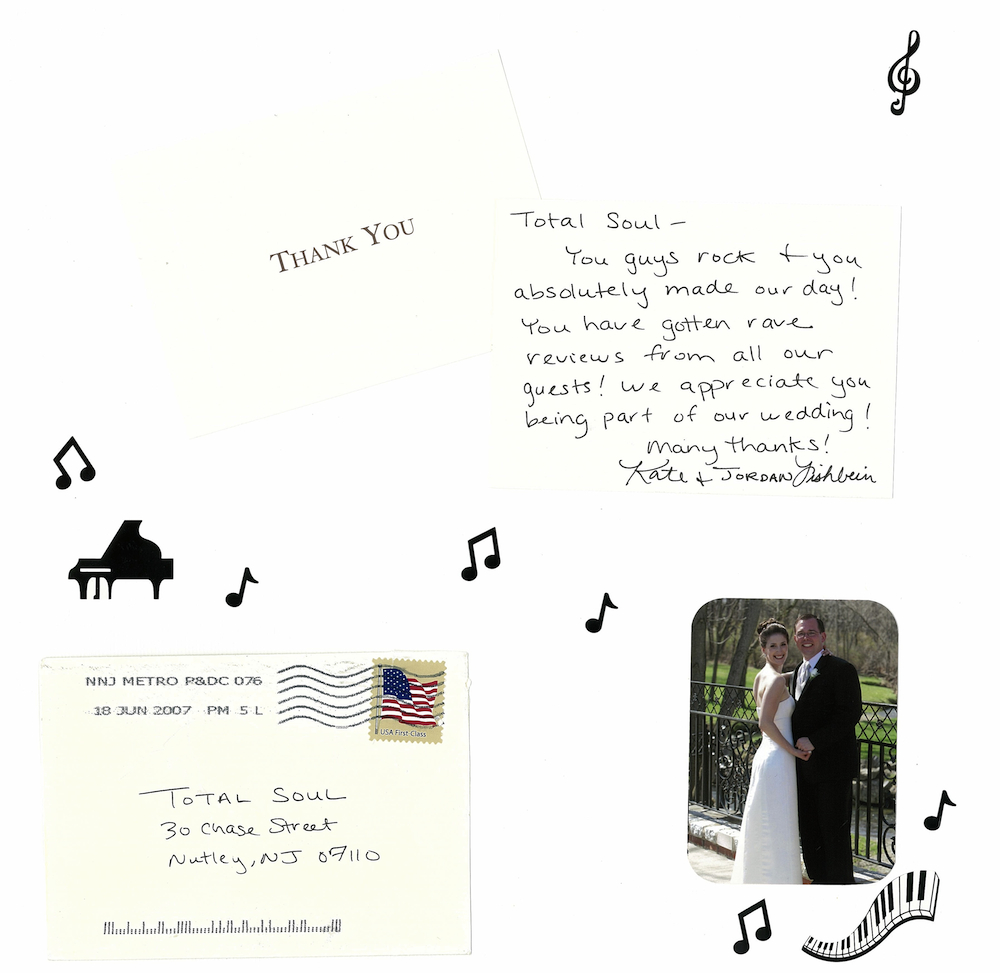 THANK YOU
Total Soul –
You guys rock + you
absolutely made our day!
You have gotten rave
reviews from all our
guests! We appreciate you
being part of our wedding!
Many thanks!
Kate + JORDAN Fishbein
NNJ METRO P&DC 076
18 JUN 2007 PM 5 L
USA First Class
TOTAL SOUL
30 Chase Street
Nutley, NJ 07110